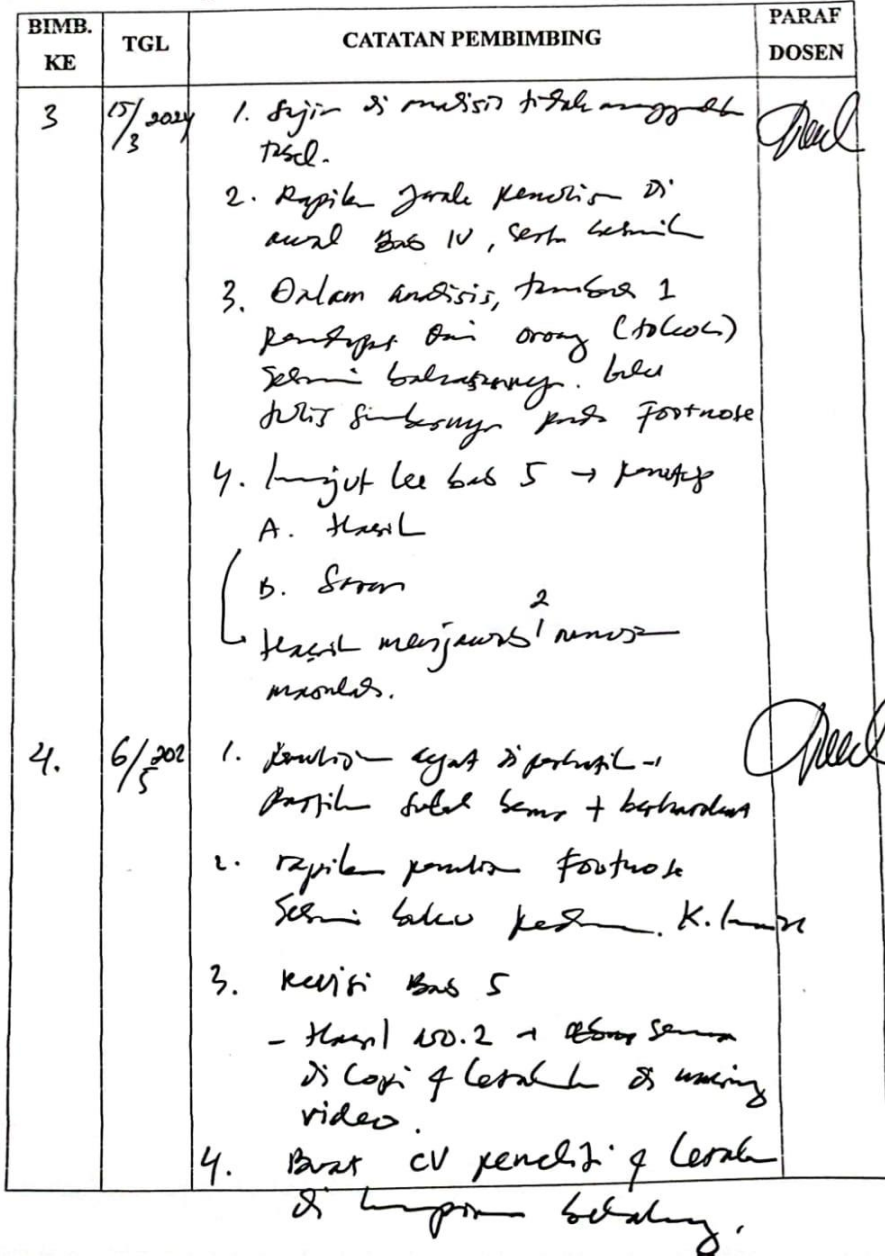 BIMB. KE TGL CATATAN PEMBIMBING PARAF DOSEN
3 15/3 2024 1. di analisis tidak
tabel.
2. Rapikan Jarak penulisan Di
awal Bab IV, serta
3. Dalam analisis, 1
pendapat dari orang (tokoh)
Sesuai bahasannya.
tulis Sumbernya pada Footnose
4. lanjut ke bab 5 → penutup
A. Hasil
B. Saran
Hasil menjawab 2 rumusan
masalah.
4. 6/5 202 1. penulisan ayat diperhatikan
Pastikan sudah benar + berharakat
2. rapikan penulisan Footnose
Sesuai buku
3. Revisi Bab 5
- Hasil no. 2 → semua
di Copi & letakkan di masing
video.
4. Buat CV peneliti & letakan
di lampiran belakang.